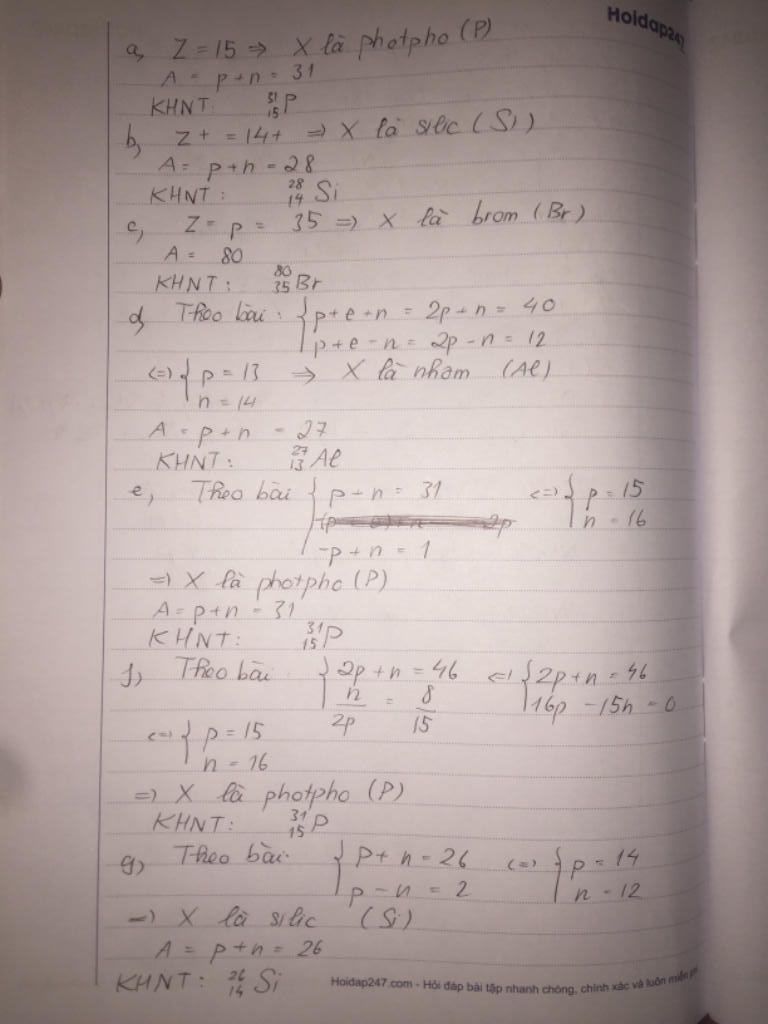 Hoidap247
a, Z = 15 => X là photpho (P)
A = p+n = 31
KHNT: ³¹₁₅P
b, Z+ = 14+ => X là silic (Si)
A = p+n = 28
KHNT: ²⁸₁₄Si
c, Z = p = 35 => X là brom (Br)
A = 80
KHNT: ⁸⁰₃₅Br
d, Theo bài: { p+e+n = 2p+n = 40
p+e-n = 2p-n = 12
<=> { p = 13 => X là nhôm (Al)
n = 14
A = p+n = 27
KHNT: ²⁷₁₃Al
e, Theo bài { p+n = 31 <=> { p = 15
-p+n = 1 n = 16
=> X là photpho (P)
A = p+n = 31
KHNT: ³¹₁₅P
f, Theo bài { 2p+n = 46 <=> { 2p+n = 46
n/2p = 8/15 16p - 15n = 0
<=> { p = 15
n = 16
=> X là photpho (P)
KHNT: ³¹₁₅P
g, Theo bài. { p+n = 26 <=> { p = 14
p-n = 2 n = 12
=> X là silic (Si)
A = p+n = 26
KHNT: ²⁶₁₄Si
Hoidap247.com - Hỏi đáp bài tập nhanh chóng, chính xác và luôn miễn phí